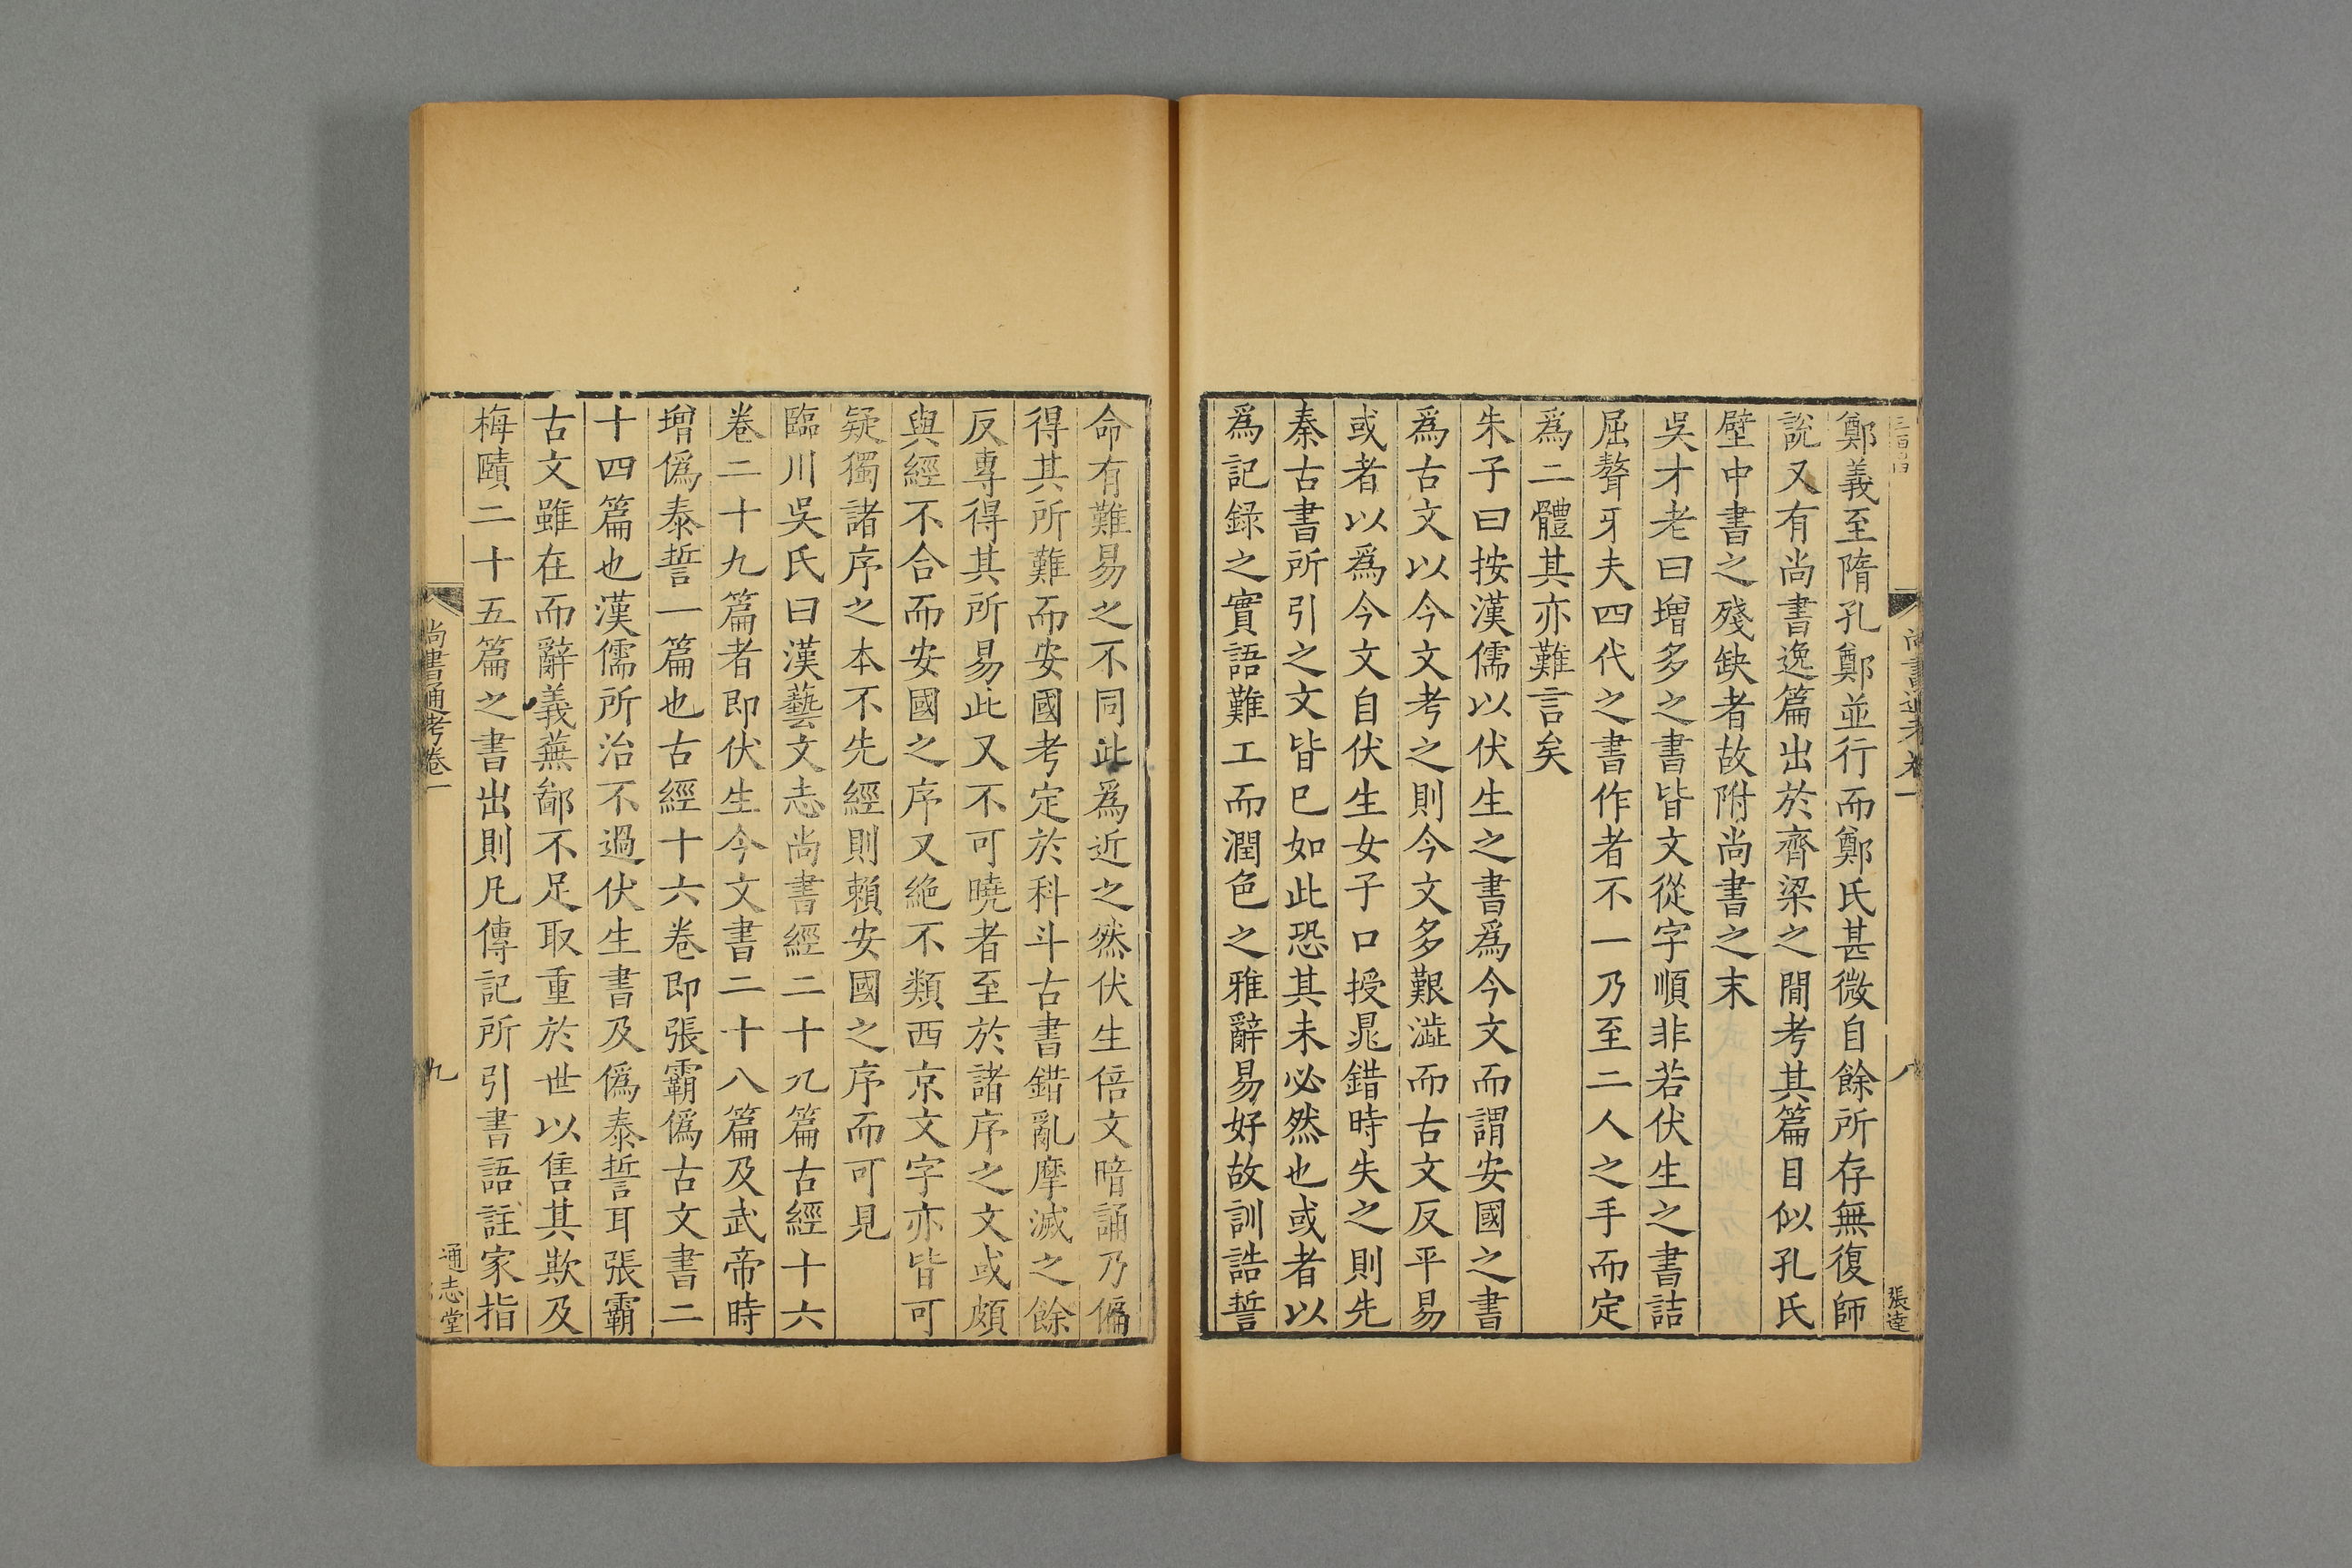 尚書通考卷一
八
張逵
鄭義至隋孔鄭並行而鄭氏甚微自餘所存無復師
說又有尚書逸篇出於齊梁之間考其篇目似孔氏
壁中書之殘缺者故附尚書之末
吳才老曰增多之書皆文從字順非若伏生之書詰
屈聱牙夫四代之書作者不一乃至二人之手而定
爲二體其亦難言矣
朱子曰按漢儒以伏生之書爲今文而謂安國之書
爲古文以今文考之則今文多艱澁而古文反平易
或者以爲今文自伏生女子口授晁錯時失之則先
秦古書所引之文皆已如此恐其未必然也或者以
爲記録之實語難工而潤色之雅辭易好故訓誥誓
命有難易之不同此爲近之然伏生倍文暗誦乃偏
得其所難而安國考定於科斗古書錯亂摩滅之餘
反專得其所易此又不可曉者至於諸序之文或頗
與經不合而安國之序又絶不類西京文字亦皆可
疑獨諸序之本不先經則賴安國之序而可見
臨川吳氏曰漢藝文志尚書經二十九篇古經十六
卷二十九篇者即伏生今文書二十八篇及武帝時
增僞泰誓一篇也古經十六卷即張霸僞古文書二
十四篇也漢儒所治不過伏生書及僞泰誓耳張霸
古文雖在而辭義蕪鄙不足取重於世以售其欺及
梅賾二十五篇之書出則凡傳記所引書語註家指
尚書通考卷一
九
通志堂